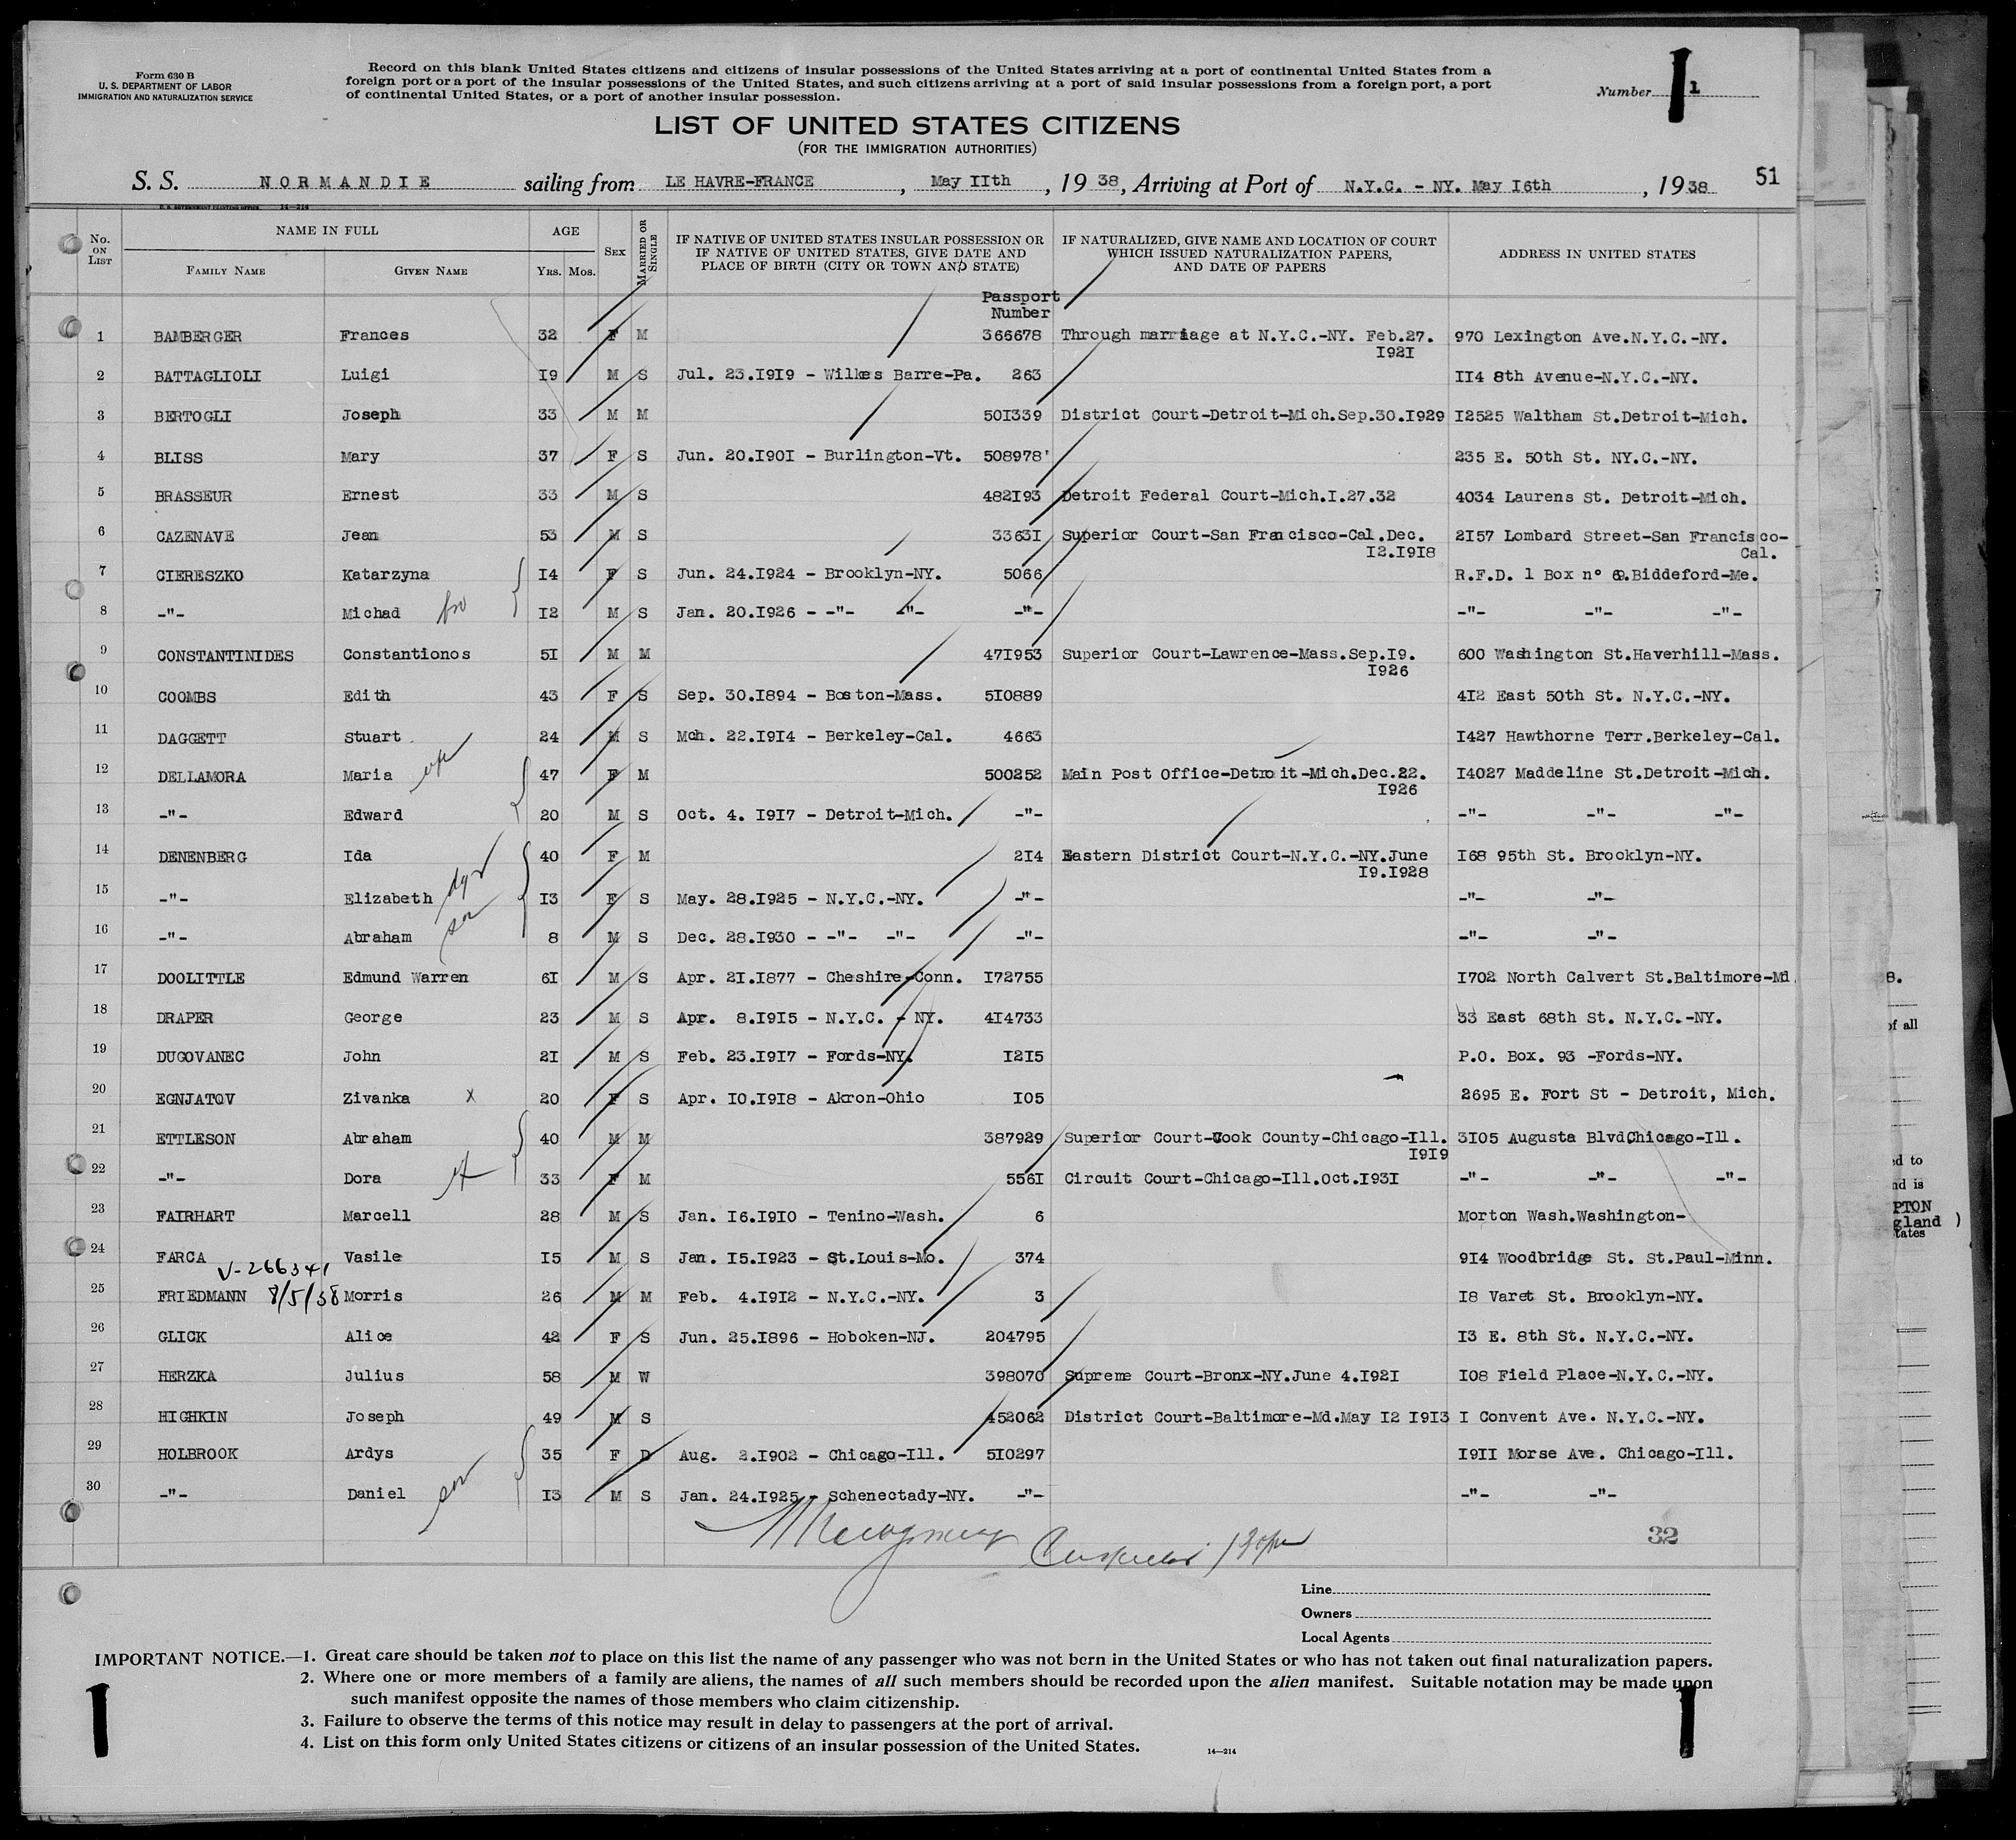 Form 630 B
U. S. DEPARTMENT OF LABOR
IMMIGRATION AND NATURALIZATION SERVICE
Record on this blank United States citizens and citizens of insular possessions of the United States arriving at a port of continental United States from a
foreign port or a port of the insular possessions of the United States, and such citizens arriving at a port of said insular possessions from a foreign port, a port
of continental United States, or a port of another insular possession.
Number 1
LIST OF UNITED STATES CITIZENS
(FOR THE IMMIGRATION AUTHORITIES)
S. S. NORMANDIE sailing from LE HAVRE-FRANCE, May IIth, 19 38, Arriving at Port of N.Y.C. - NY. May I6th, 19 38 51
U. S. GOVERNMENT PRINTING OFFICE 14—214
No. ON LIST NAME IN FULL AGE SEX MARRIED OR SINGLE IF NATIVE OF UNITED STATES INSULAR POSSESSION OR IF NATIVE OF UNITED STATES, GIVE DATE AND PLACE OF BIRTH (CITY OR TOWN AND STATE) IF NATURALIZED, GIVE NAME AND LOCATION OF COURT WHICH ISSUED NATURALIZATION PAPERS, AND DATE OF PAPERS ADDRESS IN UNITED STATES
FAMILY NAME GIVEN NAME YRS. MOS.
Passport
Number
1 BAMBERGER Frances 32 F M 366678 Through marriage at N.Y.C.-NY. Feb.27. 970 Lexington Ave.N.Y.C.-NY.
I92I
2 BATTAGLIOLI Luigi I9 M S Jul. 23.I9I9 - Wilkes Barre-Pa. 263 II4 8th Avenue-N.Y.C.-NY.
3 BERTOGLI Joseph 33 M M 50I339 District Court-Detroit-Mich.Sep.30.I929 I2525 Waltham St.Detroit-Mich.
4 BLISS Mary 37 F S Jun. 20.I90I - Burlington-Vt. 508978' 235 E. 50th St. NY.C.-NY.
5 BRASSEUR Ernest 33 M S 482I93 Detroit Federal Court-Mich.I.27.32 4034 Laurens St. Detroit-Mich.
6 CAZENAVE Jean 53 M S 3363I Superior Court-San Francisco-Cal.Dec. 2I57 Lombard Street-San Francisco-
I2.I9I8 Cal.
7 CIERESZKO Katarzyna I4 F S Jun. 24.I924 - Brooklyn-NY. 5066 R.F.D. 1 Box n° .Biddeford-Me.
8 -"- Michad I2 M S Jan. 20.I926 - -"- -"- -"- -"- -"- -"-
9 CONSTANTINIDES Constantionos 5I M M 47I953 Superior Court-Lawrence-Mass.Sep.I9. 600 Washington St.Haverhill-Mass.
I926
10 COOMBS Edith 43 F S Sep. 30.I894 - Boston-Mass. 5I0889 4I2 East 50th St. N.Y.C.-NY.
11 DAGGETT Stuart 24 M S Mch. 22.I9I4 - Berkeley-Cal. 4663 I427 Hawthorne Terr.Berkeley-Cal.
12 DELLAMORA Maria 47 F M 500252 Main Post Office-Detroit-Mich.Dec.22. I4027 Maddeline St.Detroit-Mich.
I926
13 -"- Edward 20 M S Oct. 4. I9I7 - Detroit-Mich. -"- -"- -"- -"-
14 DENENBERG Ida 40 F M 2I4 Eastern District Court-N.Y.C.-NY.June I68 95th St. Brooklyn-NY.
I9.I928
15 -"- Elizabeth I3 F S May. 28.I925 - N.Y.C.-NY. -"- -"- -"-
16 -"- Abraham son 8 M S Dec. 28.I930 - -"- -"- -"- -"- -"-
17 DOOLITTLE Edmund Warren 6I M S Apr. 2I.I877 - Cheshire-Conn. I72755 I702 North Calvert St.Baltimore-Md.
18 DRAPER George 23 M S Apr. 8.I9I5 - N.Y.C. - NY. 4I4733 33 East 68th St. N.Y.C.-NY.
19 DUGOVANEC John 2I M S Feb. 23.I9I7 - Fords-NY. I2I5 P.O. Box. 93 -Fords-NY.
20 EGNJATOV Zivanka x 20 F S Apr. I0.I9I8 - Akron-Ohio I05 2695 E. Fort St - Detroit, Mich.
21 ETTLESON Abraham 40 M M 387929 Superior Court-Cook County-Chicago-Ill. 3I05 Augusta Blvd.Chicago-Ill.
I9I9
22 -"- Dora 33 F M 556I Circuit Court-Chicago-Ill.Oct.I93I -"- -"- -"-
23 FAIRHART Marcell 28 M S Jan. I6.I9I0 - Tenino-Wash. 6 Morton Wash.Washington-
24 FARCA Vasile I5 M S Jan. I5.I923 - St.Louis-Mo. 374 9I4 Woodbridge St. St.Paul-Minn.
V-266341
25 FRIEDMANN 8/5/38 Morris 26 M M Feb. 4.I9I2 - N.Y.C.-NY. 3 I8 Varet St. Brooklyn-NY.
26 GLICK Alice 42 F S Jun. 25.I896 - Hoboken-NJ. 204795 I3 E. 8th St. N.Y.C.-NY.
27 HERZKA Julius 58 M W 398070 Supreme Court-Bronx-NY.June 4.I92I I08 Field Place-N.Y.C.-NY.
28 HIGHKIN Joseph 49 M S 452062 District Court-Baltimore-Md.May I2 I9I3 I Convent Ave. N.Y.C.-NY.
29 HOLBROOK Ardys 35 F D Aug. 2.I902 - Chicago-Ill. 5I0297 I9II Morse Ave. Chicago-Ill.
30 -"- Daniel son I3 M S Jan. 24.I925 - Schenectady-NY. -"- -"- -"-
32
Line
Owners
Local Agents
IMPORTANT NOTICE.—1. Great care should be taken not to place on this list the name of any passenger who was not born in the United States or who has not taken out final naturalization papers.
2. Where one or more members of a family are aliens, the names of all such members should be recorded upon the alien manifest. Suitable notation may be made upon
such manifest opposite the names of those members who claim citizenship.
3. Failure to observe the terms of this notice may result in delay to passengers at the port of arrival.
4. List on this form only United States citizens or citizens of an insular possession of the United States.
14—214